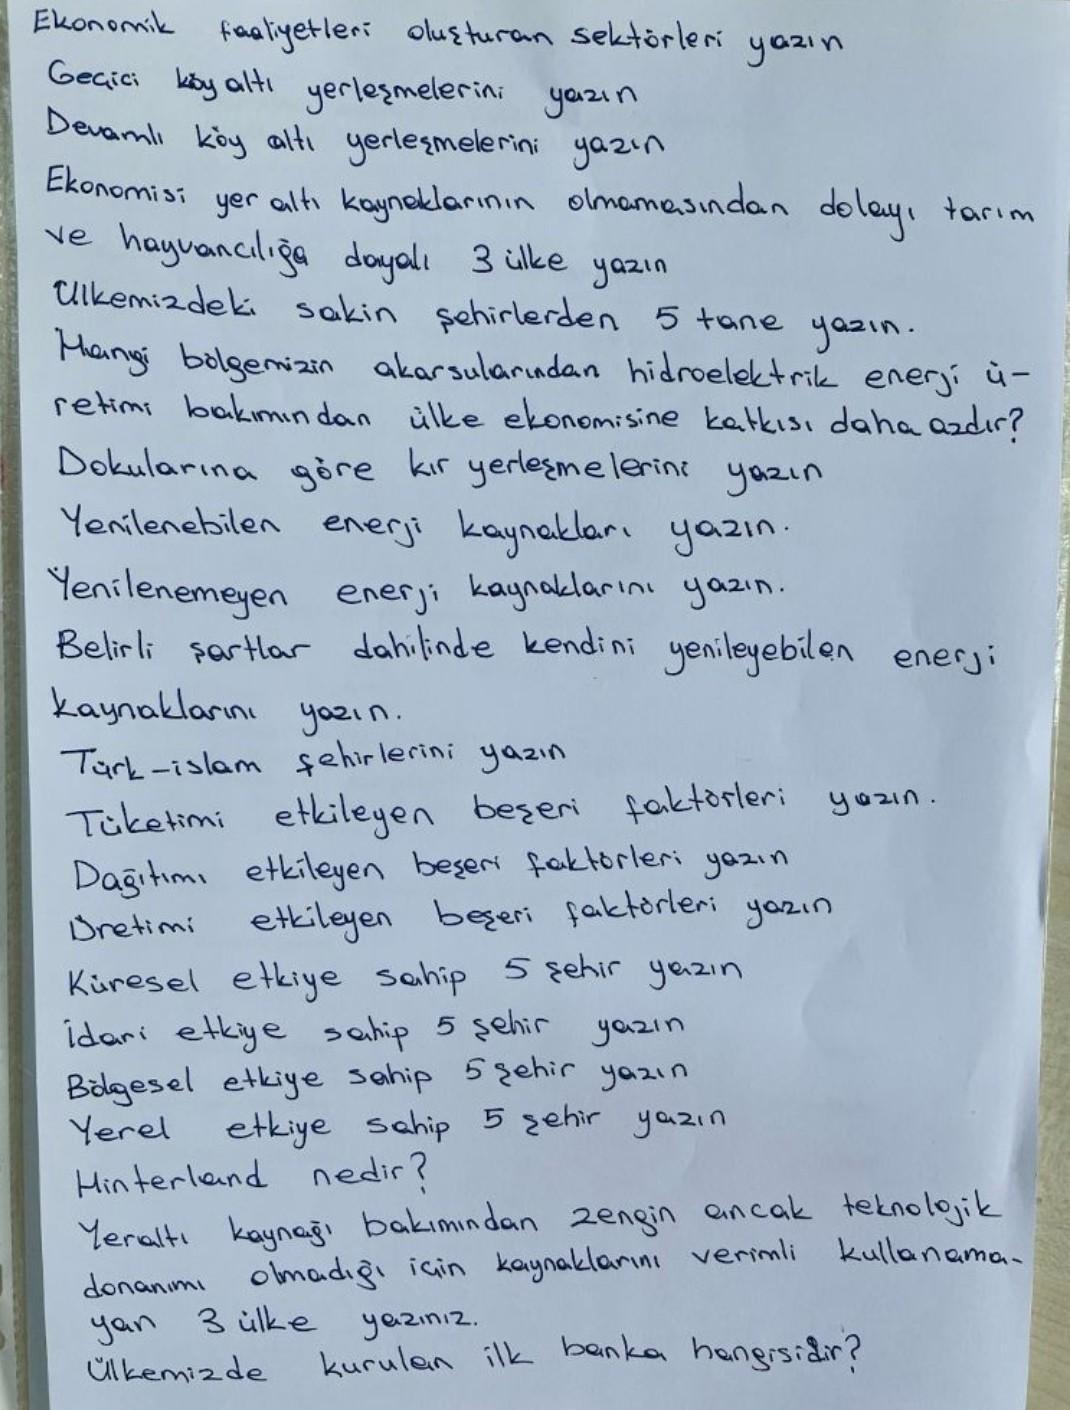 Ekonomik faaliyetleri oluşturan sektörleri yazın
Geçici köy altı yerleşmelerini yazın
Devamlı köy altı yerleşmelerini yazın
Ekonomisi yer altı kaynaklarının olmamasından dolayı tarım
ve hayvancılığa dayalı 3 ülke yazın
Ülkemizdeki sakin şehirlerden 5 tane yazın.
Hangi bölgemizin akarsularından hidroelektrik enerji ü-
retimi bakımından ülke ekonomisine katkısı daha azdır?
Dokularına göre kır yerleşmelerini yazın
Yenilenebilen enerji kaynakları yazın.
Yenilenemeyen enerji kaynaklarını yazın.
Belirli şartlar dahilinde kendini yenileyebilen enerji
kaynaklarını yazın.
Türk-islam şehirlerini yazın
Tüketimi etkileyen beşeri faktörleri yazın.
Dağıtımı etkileyen beşeri faktörleri yazın
Üretimi etkileyen beşeri faktörleri yazın
Küresel etkiye sahip 5 şehir yazın
İdari etkiye sahip 5 şehir yazın
Bölgesel etkiye sahip 5 şehir yazın
Yerel etkiye sahip 5 şehir yazın
Hinterland nedir?
Yeraltı kaynağı bakımından zengin ancak teknolojik
donanımı olmadığı için kaynaklarını verimli kullanama-
yan 3 ülke yazınız.
Ülkemizde kurulan ilk banka hangisidir?